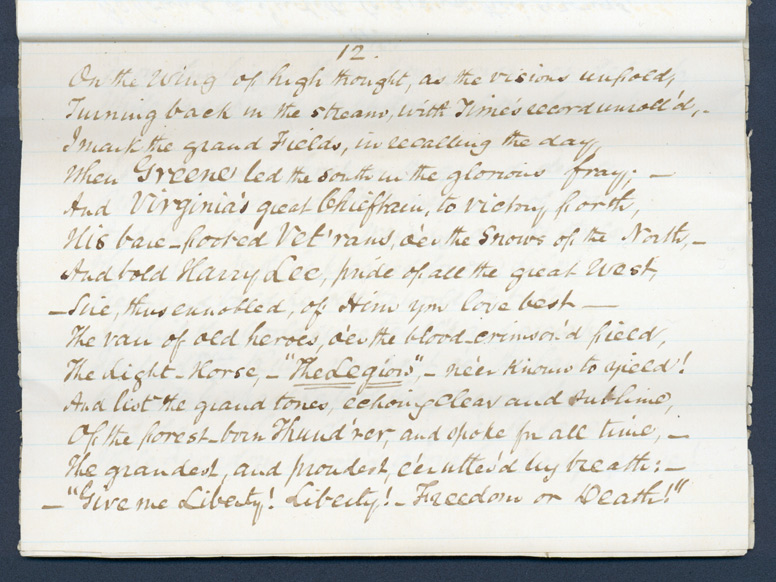 12.
On the Wing of high thought, as the visions unfold,
Turning back in the stream, with Time's record unroll'd,-
I mark the grand Fields, in recalling the day,
When Greene led the South in the glorious fray; -
And Virginia's great Chieftain, to victory forth,
His bare-footed Vet'rans, o'er the Snows of the North,-
And bold Harry Lee, pride of all the great West,
- Sire, thus ennobled, of Him you love best -
The van of old heroes, o'er the blood-crimson'd field,
The Light-Horse, - "The Legion", - ne'er known to yield!
And list the grand tones, echoing clear and sublime,
Of the forest-born Thund'rer, and spoke for all time, -
The grandest, and proudest, e'er utter'd by breath: -
- "Give me Liberty! Liberty! - Freedom or Death!"